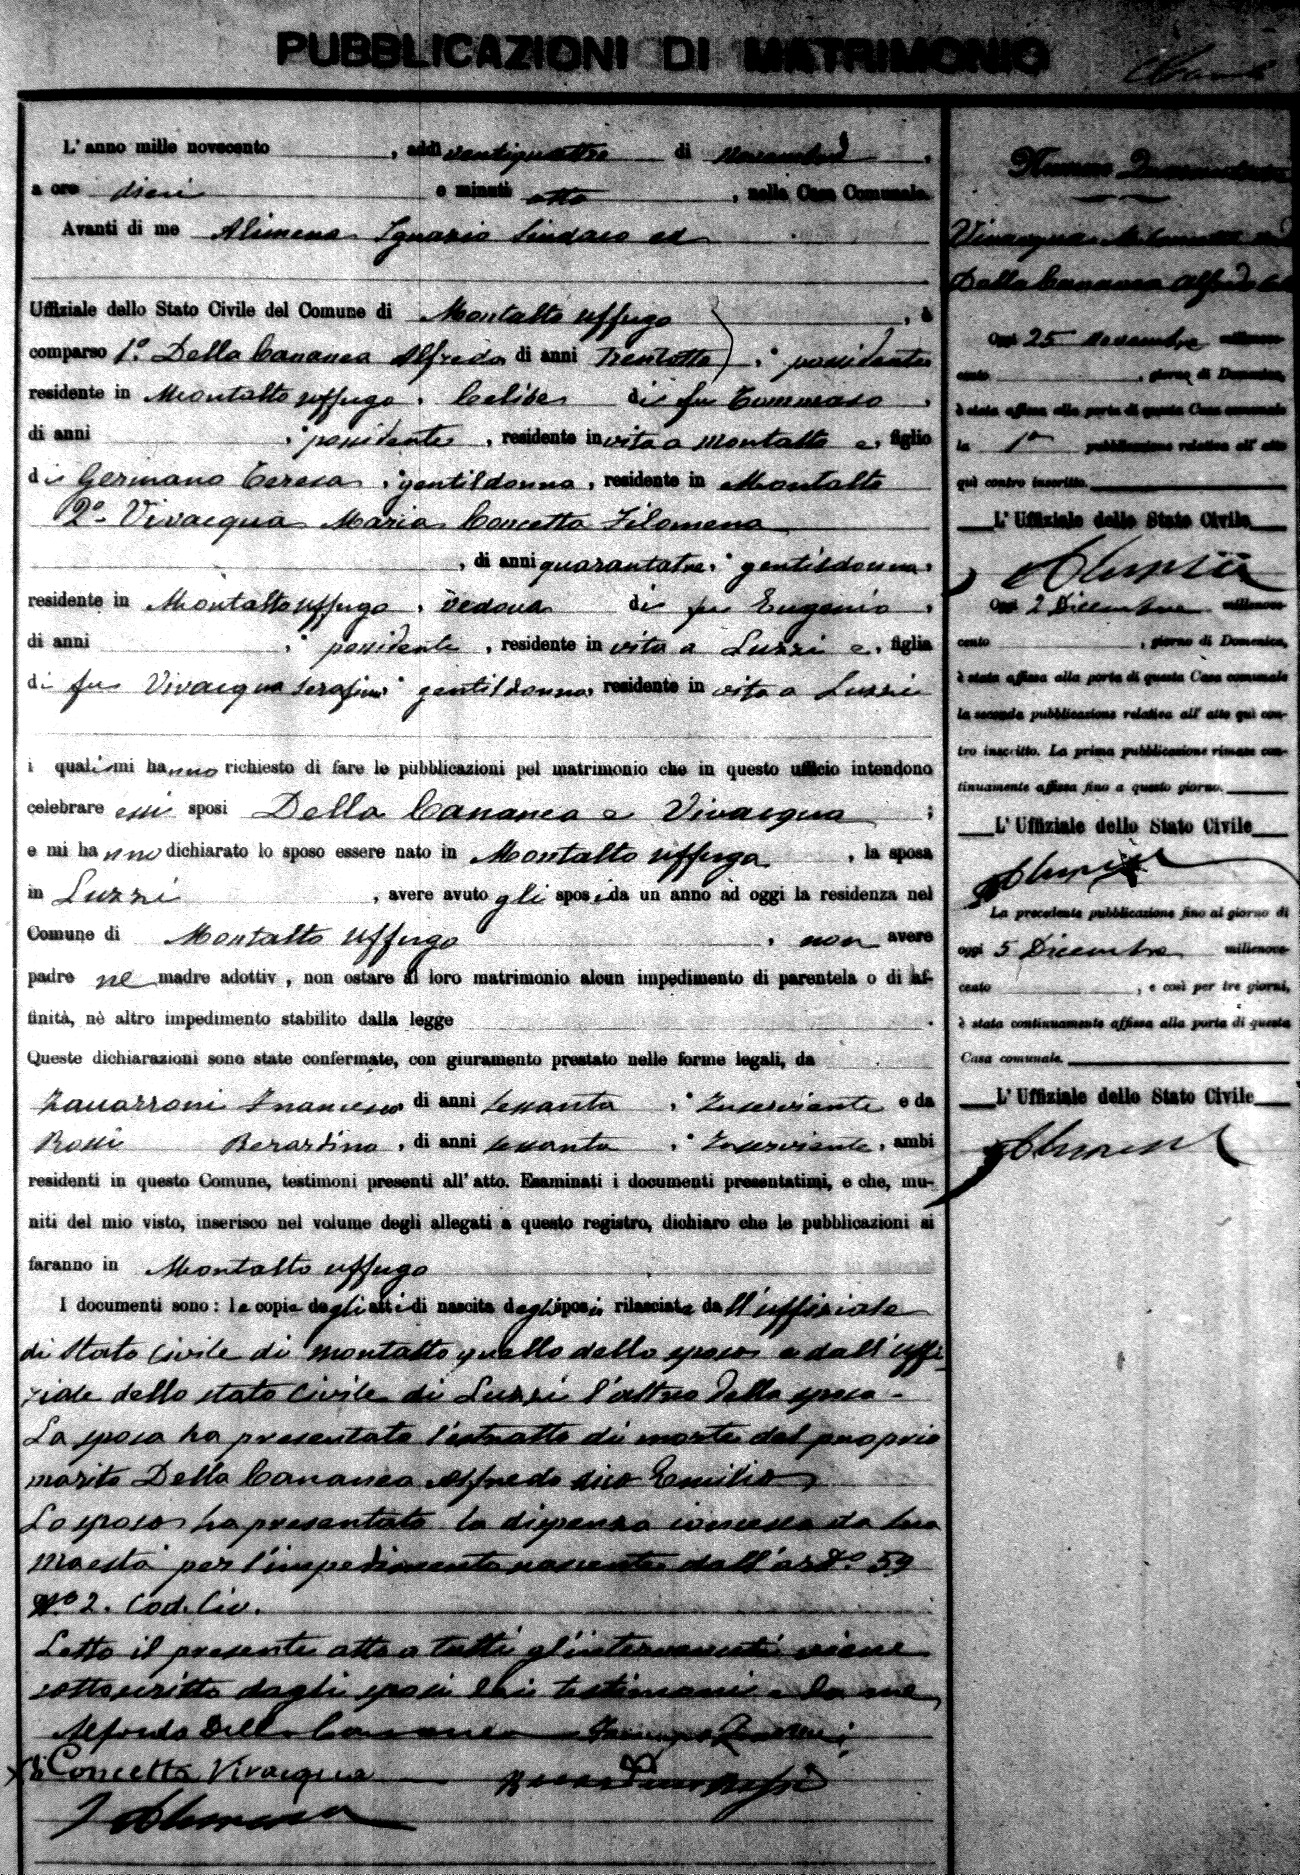 PUBBLICAZIONI DI MATRIMONIO
L'anno mille novecento , addì ventiquattro di novembre ,
a ore dieci e minuti otto , nella Casa Comunale.
Avanti di me Alimena Ignazio Sindaco ed
Uffiziale dello Stato Civile del Comune di Montalto Uffugo , è
comparso 1.° Della Cananea Alfredo di anni trentotto , possidente
residente in Montalto uffugo , Celibe di fu Tommaso ,
di anni , possidente , residente in vita a Montalto e , figlio
di Germano Teresa , gentildonna , residente in Montalto
2°- Vivacqua Maria Concetta Filomena
, di anni quarantatre , gentildonna ,
residente in Montalto uffugo , vedova di fu Eugenio ,
di anni , possidente , residente in vita a Luzzi e , figlia
di fu Vivacqua Serafina , gentildonna , residente in vita a Luzzi
i quali mi hanno richiesto di fare le pubblicazioni pel matrimonio che in questo ufficio intendono
celebrare essi sposi Della Cananea e Vivacqua ;
e mi hanno dichiarato lo sposo essere nato in Montalto uffugo , la sposa
in Luzzi , avere avuto gli sposi da un anno ad oggi la residenza nel
Comune di Montalto Uffugo , non avere
padre nè madre adottiv , non ostare al loro matrimonio alcun impedimento di parentela o di af-
finità, nè altro impedimento stabilito dalla legge .
Queste dichiarazioni sono state confermate, con giuramento prestato nelle forme legali, da
Zavarroni Francesco di anni sessanta , Inserviente e da
Rossi Berardino , di anni sessanta , Inserviente , ambi
residenti in questo Comune, testimoni presenti all'atto. Esaminati i documenti presentatimi, e che, mu-
niti del mio visto, inserisco nel volume degli allegati a questo registro, dichiaro che le pubblicazioni si
faranno in Montalto uffugo
I documenti sono: le copie degli atti di nascita degli sposi rilasciate dall'uffiziale
di Stato Civile di Montalto quello dello sposo e dall'uffi-
ziale dello stato Civile di Luzzi l'altro della sposa -
La sposa ha presentato l'estratto di morte del proprio
marito Della Cananea Alfredo dico Emilio
Lo sposo ha presentato la dispensa concessa da Sua
Maestà per l'impedimento nascente dall'art.° 59
N.° 2. Cod. Civ.
Letto il presente atto a tutti gl'intervenuti viene
sottoscritto dagli sposi dai testimoni e da me
Alfredo Della Cananea
Concetta Vivacqua
I Alimena
Vivacqua
Della Cananea Alfredo
Oggi 25 novembre millenove-
cento , giorno di Domenica,
è stata affissa alla porta di questa Casa comunale
la 1a pubblicazione relativa all'atto
quì contro inscritto.
L'Uffiziale dello Stato Civile
Alimena
Oggi 2 Dicembre millenove-
cento , giorno di Domenica,
è stata affissa alla porta di questa Casa comunale
la seconda pubblicazione relativa all'atto quì con-
tro inscritto. La prima pubblicazione rimase con-
tinuamente affissa fino a questo giorno.
L'Uffiziale dello Stato Civile
Alimena
La precedente pubblicazione fino al giorno di
oggi 5 Dicembre millenove-
cento , e così per tre giorni,
è stata continuamente affissa alla porta di questa
Casa comunale.
L'Uffiziale dello Stato Civile
Alimena